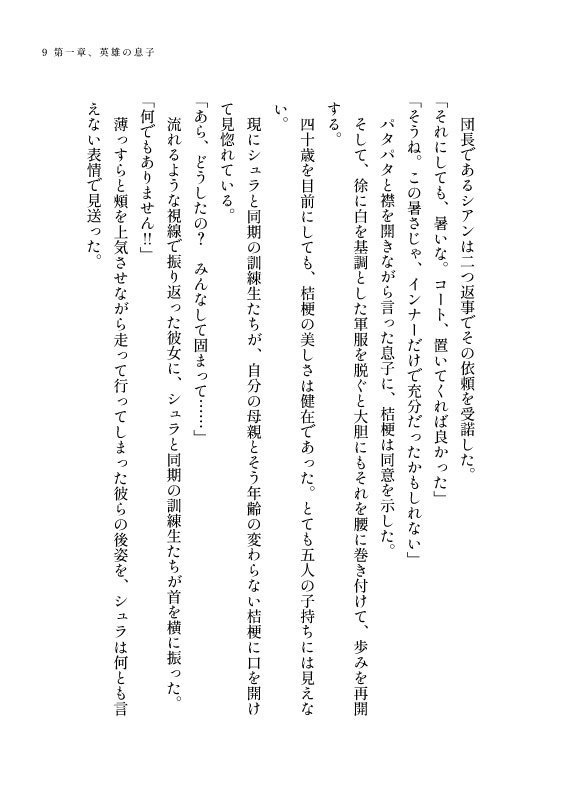 9 第一章、英雄の息子
団長であるシアンは二つ返事でその依頼を受諾した。
「それにしても、暑いな。コート、置いてくれば良かった」
「そうね。この暑さじゃ、インナーだけで充分だったかもしれない」
パタパタと襟を開きながら言った息子に、桔梗は同意を示した。
そして、徐に白を基調とした軍服を脱ぐと大胆にもそれを腰に巻き付けて、歩みを再開
する。
四十歳を目前にしても、桔梗の美しさは健在であった。とても五人の子持ちには見えな
い。
現にシュラと同期の訓練生たちが、自分の母親とそう年齢の変わらない桔梗に口を開け
て見惚れている。
「あら、どうしたの？　みんなして固まって……」
流れるような視線で振り返った彼女に、シュラと同期の訓練生たちが首を横に振った。
「何でもありません!!」
薄っすらと頬を上気させながら走って行ってしまった彼らの後姿を、シュラは何とも言
えない表情で見送った。